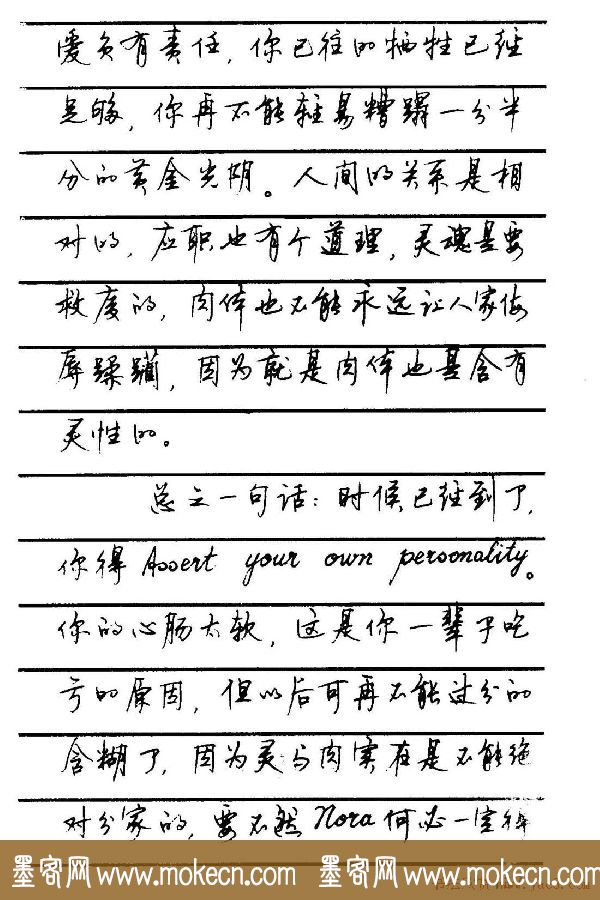 爱负有责任，你已往的牺牲已经
足够，你再不能轻易糟蹋一分半
分的黄金光阴。人间的关系是相
对的，应职也有个道理，灵魂是要
救度的，肉体也不能永远让人家侮
辱蹂躏，因为就是肉体也是含有
灵性的。
总之一句话：时候已经到了，
你得Assert your own personality。
你的心肠太软，这是你一辈子吃
亏的原因，但以后可再不能过分的
含糊了，因为灵与肉实在是不能绝
对分家的，要不然Nora何必一定得
墨客网 www.mokecn.com 墨客网 www.mokecn.com